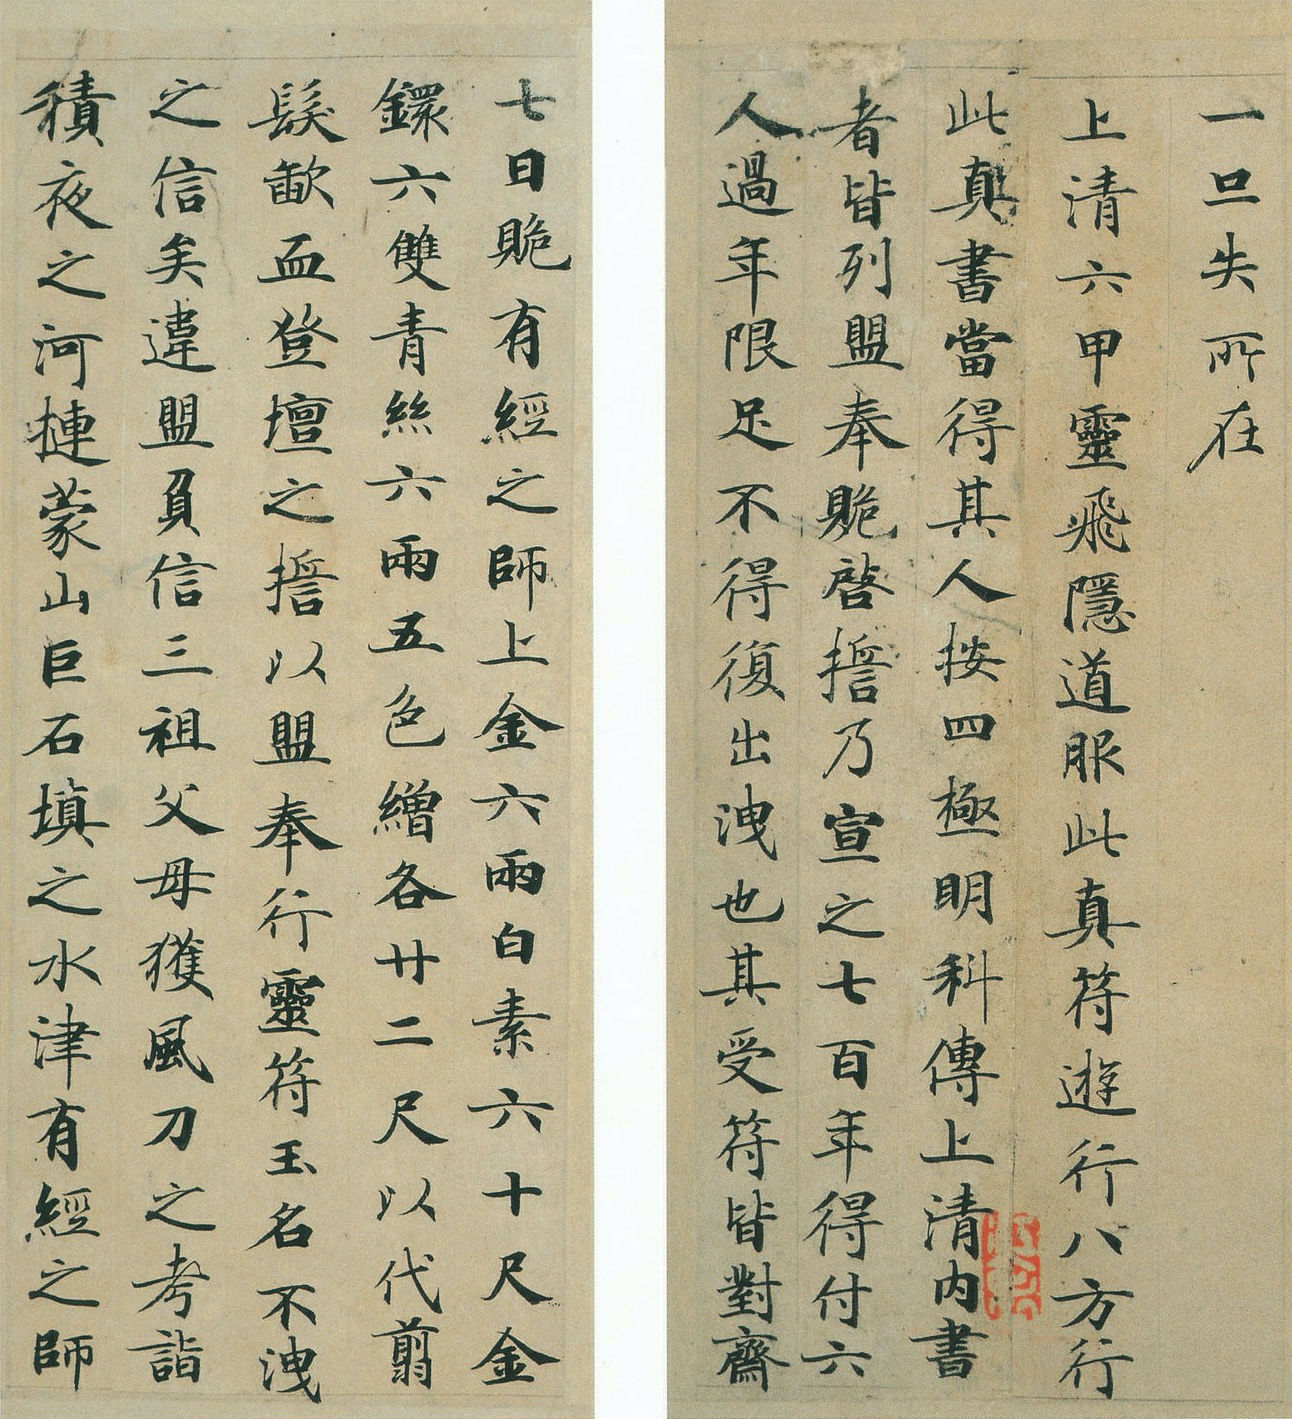 一旦失所在
上清六甲靈飛隱道服此真符遊行八方行
此真書當得其人按四極明科傳上清內書
者皆列盟奉貺啓擔乃宣之七百年得付六
人過年限足不得復出洩也其受符皆對齋
七日貺有經之師上金六兩白素六十尺金
鐶六雙青絲六兩五色繒各廿二尺以代翦
髮歃血登壇之擔以盟奉行靈符玉名不洩
之信矣違盟負信三祖父母獲風刀之考詣
積夜之河揵蒙山巨石填之水津有經之師